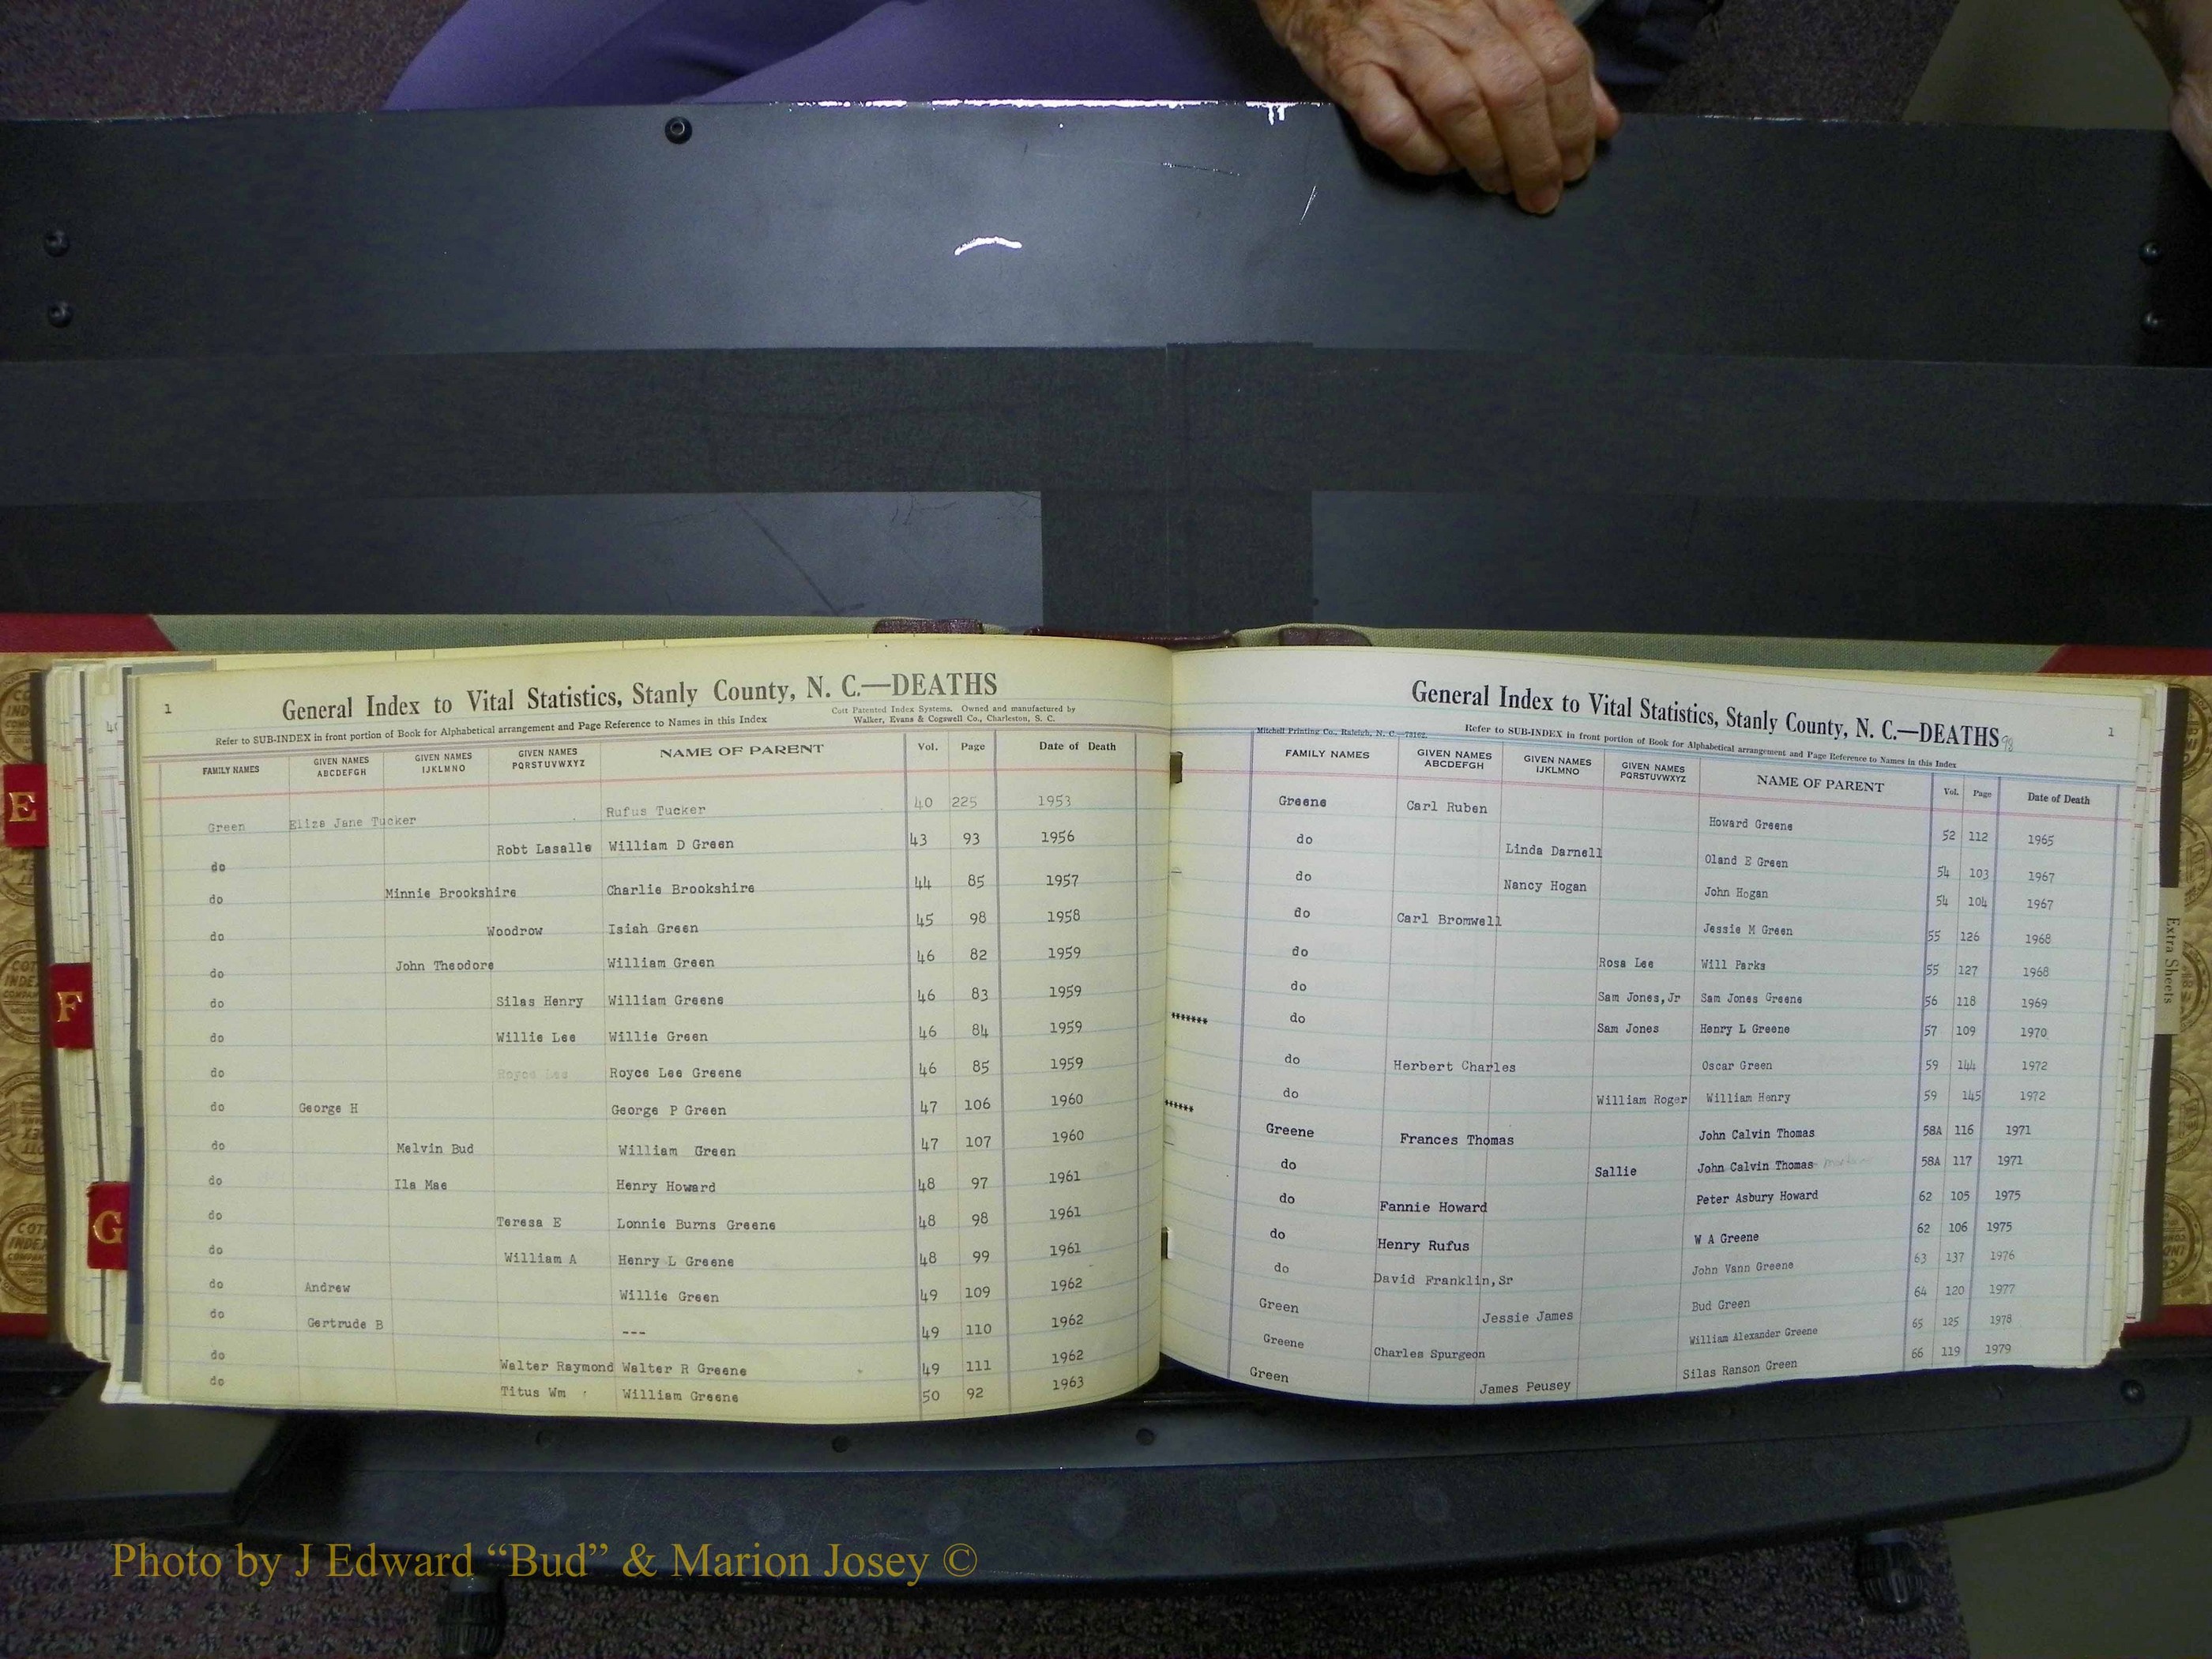 1
General Index to Vital Statistics, Stanly County, N. C.—DEATHS
Refer to SUB-INDEX in front portion of Book for Alphabetical arrangement and Page Reference to Names in this Index
Cott Patented Index Systems. Owned and manufactured by
Walker, Evans & Cogswell Co., Charleston, S. C.
FAMILY NAMES GIVEN NAMES ABCDEFGH GIVEN NAMES IJKLMNO GIVEN NAMES PQRSTUVWXYZ NAME OF PARENT Vol. Page Date of Death
Green Eliza Jane Tucker Rufus Tucker 40 225 1953
do Robt Lasalle William D Green 43 93 1956
do Minnie Brookshire Charlie Brookshire 44 85 1957
do Woodrow Isiah Green 45 98 1958
do John Theodore William Green 46 82 1959
do Silas Henry William Greene 46 83 1959
do Willie Lee Willie Green 46 84 1959
do Royce Lee Royce Lee Greene 46 85 1959
do George H George P Green 47 106 1960
do Melvin Bud William Green 47 107 1960
do Ila Mae Henry Howard 48 97 1961
do Teresa E Lonnie Burns Greene 48 98 1961
do William A Henry L Greene 48 99 1961
do Andrew Willie Green 49 109 1962
do Gertrude B --- 49 110 1962
do Walter Raymond Walter R Greene 49 111 1962
do Titus Wm William Greene 50 92 1963
General Index to Vital Statistics, Stanly County, N. C.—DEATHS 98
1
Mitchell Printing Co., Raleigh, N. C.
Refer to SUB-INDEX in front portion of Book for Alphabetical arrangement and Page Reference to Names in this Index
FAMILY NAMES GIVEN NAMES ABCDEFGH GIVEN NAMES IJKLMNO GIVEN NAMES PQRSTUVWXYZ NAME OF PARENT Vol. Page Date of Death
Greene Carl Ruben Howard Greene 52 112 1965
do Linda Darnell Oland E Green 54 103 1967
do Nancy Hogan John Hogan 54 104 1967
do Carl Bromwell Jessie M Green 55 126 1968
do Rosa Lee Will Parks 55 127 1968
do Sam Jones,Jr Sam Jones Greene 56 118 1969
******* do Sam Jones Henry L Greene 57 109 1970
do Herbert Charles Oscar Green 59 144 1972
do William Roger William Henry 59 145 1972
****** Greene Frances Thomas John Calvin Thomas 58A 116 1971
do Sallie John Calvin Thomas 58A 117 1971
do Fannie Howard Peter Asbury Howard 62 105 1975
do Henry Rufus W A Greene 62 106 1975
do David Franklin,Sr John Vann Greene 63 137 1976
Green Jessie James Bud Green 64 120 1977
Greene Charles Spurgeon William Alexander Greene 65 125 1978
Green James Peusey Silas Ranson Green 66 119 1979
E
F
G
Extra Sheets
Photo by J Edward “Bud” & Marion Josey ©